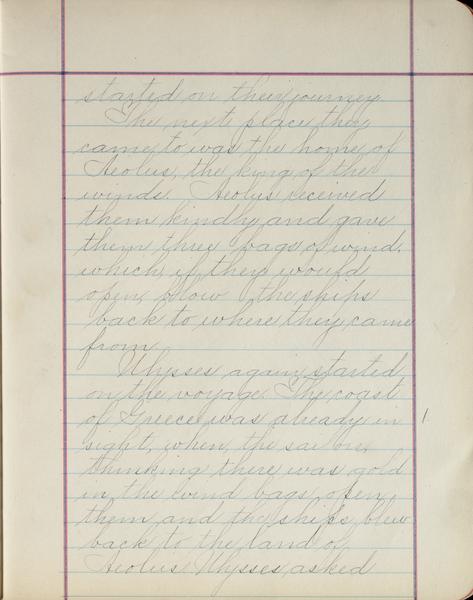 started on their journey.
The next place they
came to was the home of
Aeolus, the king of the
winds. Aeolus received
them kindly and gave
them three bags of wind,
which, if they would
open, blow the ships
back to where they came
from.
Ulysses again started
on the voyage. The coast
of Greece was already in
sight, when the sailors,
thinking there was gold
in the wind bags, open
them and the ships blew
back to the land of
Aeolus. Ulysses asked